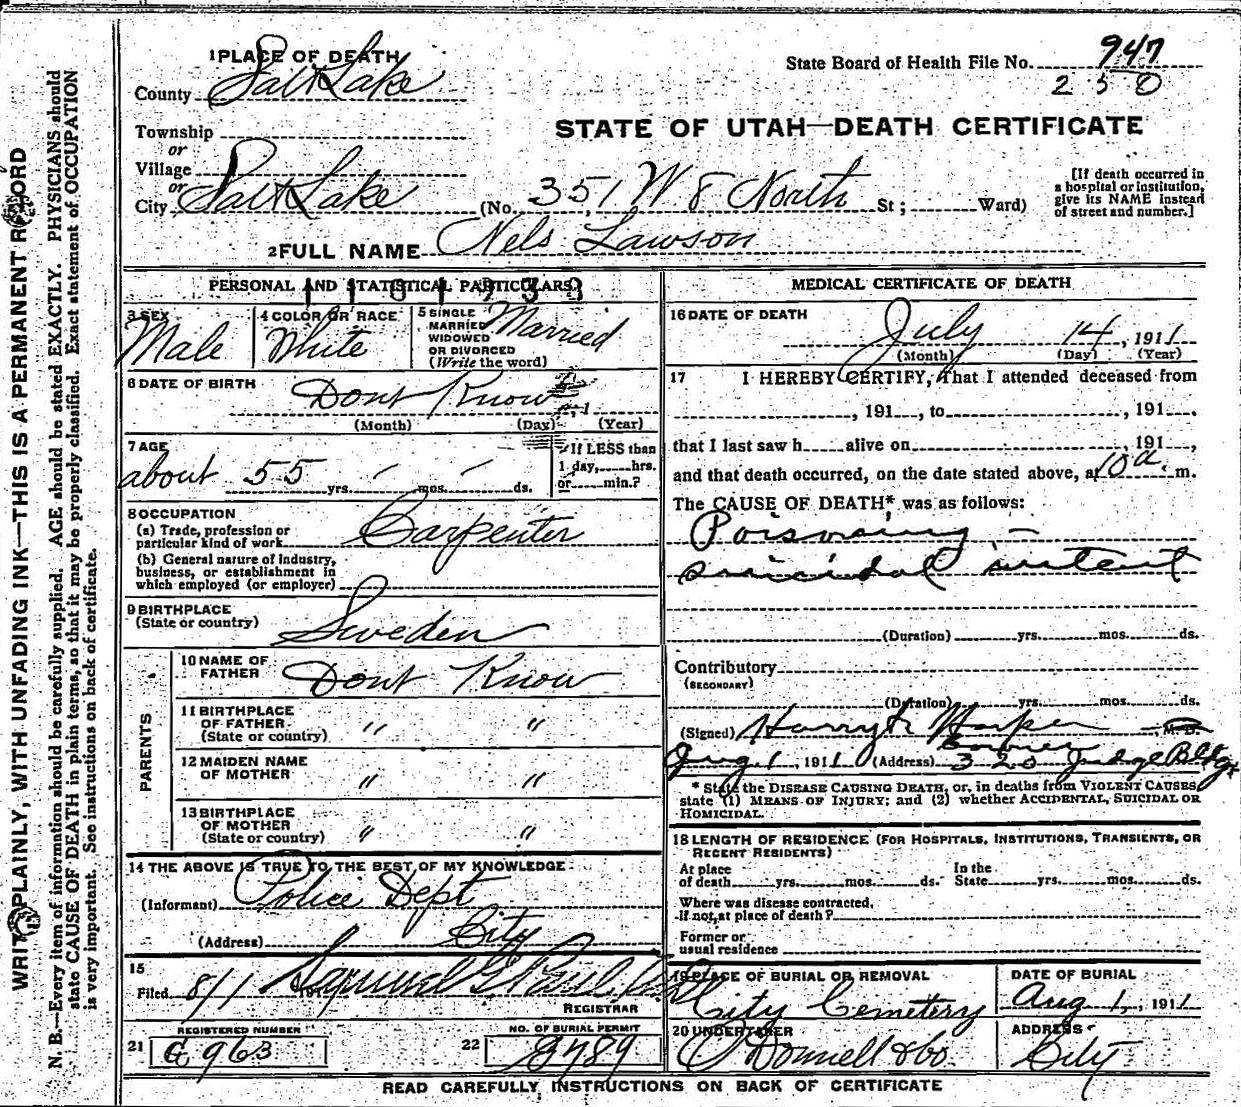 1 PLACE OF DEATH
County Salt Lake
Township
or
Village
or
City Salt Lake (No. 351 W. 8 North St; Ward)
State Board of Health File No. 947
250
STATE OF UTAH—DEATH CERTIFICATE
[If death occurred in
a hospital or institution,
give its NAME instead
of street and number.]
2 FULL NAME Nels Lawson
PERSONAL AND STATISTICAL PARTICULARS
3 SEX Male
4 COLOR OR RACE White
5 SINGLE
MARRIED
WIDOWED
OR DIVORCED
(Write the word) Married
6 DATE OF BIRTH Dont Know , 1
(Month) (Day) (Year)
7 AGE about 55 yrs. mos. ds.
If LESS than
1 day, hrs.
or min.?
8 OCCUPATION
(a) Trade, profession or
particular kind of work Carpenter
(b) General nature of industry,
business, or establishment in
which employed (or employer)
9 BIRTHPLACE
(State or country) Sweden
PARENTS
10 NAME OF
FATHER Dont Know
11 BIRTHPLACE
OF FATHER
(State or country) " "
12 MAIDEN NAME
OF MOTHER " "
13 BIRTHPLACE
OF MOTHER
(State or country) " "
14 THE ABOVE IS TRUE TO THE BEST OF MY KNOWLEDGE
(Informant) Police Dept
(Address) City
15
Filed 8/1 191 Samuel G. Paul
REGISTRAR
21 REGISTERED NUMBER G 963
22 NO. OF BURIAL PERMIT B789
MEDICAL CERTIFICATE OF DEATH
16 DATE OF DEATH
July 14, 1911
(Month) (Day) (Year)
17 I HEREBY CERTIFY, That I attended deceased from
, 191 , to , 191 .
that I last saw h alive on , 191 ,
and that death occurred, on the date stated above, at 10 a. m.
The CAUSE OF DEATH* was as follows:
Poisoning —
suicidal intent
(Duration) yrs. mos. ds.
Contributory
(SECONDARY)
(Duration) yrs. mos. ds.
(Signed) Harry Harper , M. D.
Aug 1, 1911 (Address) 320 Judge Bldg
* State the DISEASE CAUSING DEATH, or, in deaths from VIOLENT CAUSES,
state (1) MEANS OF INJURY; and (2) whether ACCIDENTAL, SUICIDAL OR
HOMICIDAL.
18 LENGTH OF RESIDENCE (FOR HOSPITALS, INSTITUTIONS, TRANSIENTS, OR
RECENT RESIDENTS)
At place
of death yrs. mos. ds.
In the
State yrs. mos. ds.
Where was disease contracted,
if not at place of death?
Former or
usual residence
19 PLACE OF BURIAL OR REMOVAL
City Cemetery
DATE OF BURIAL
Aug 1, 1911
20 UNDERTAKER
O'Donnell & Co.
ADDRESS
City
READ CAREFULLY INSTRUCTIONS ON BACK OF CERTIFICATE
WRITE PLAINLY, WITH UNFADING INK—THIS IS A PERMANENT RECORD
N. B.—Every item of information should be carefully supplied. AGE should be stated EXACTLY. PHYSICIANS should
state CAUSE OF DEATH in plain terms, so that it may be properly classified. Exact statement of OCCUPATION
is very important. See instructions on back of certificate.